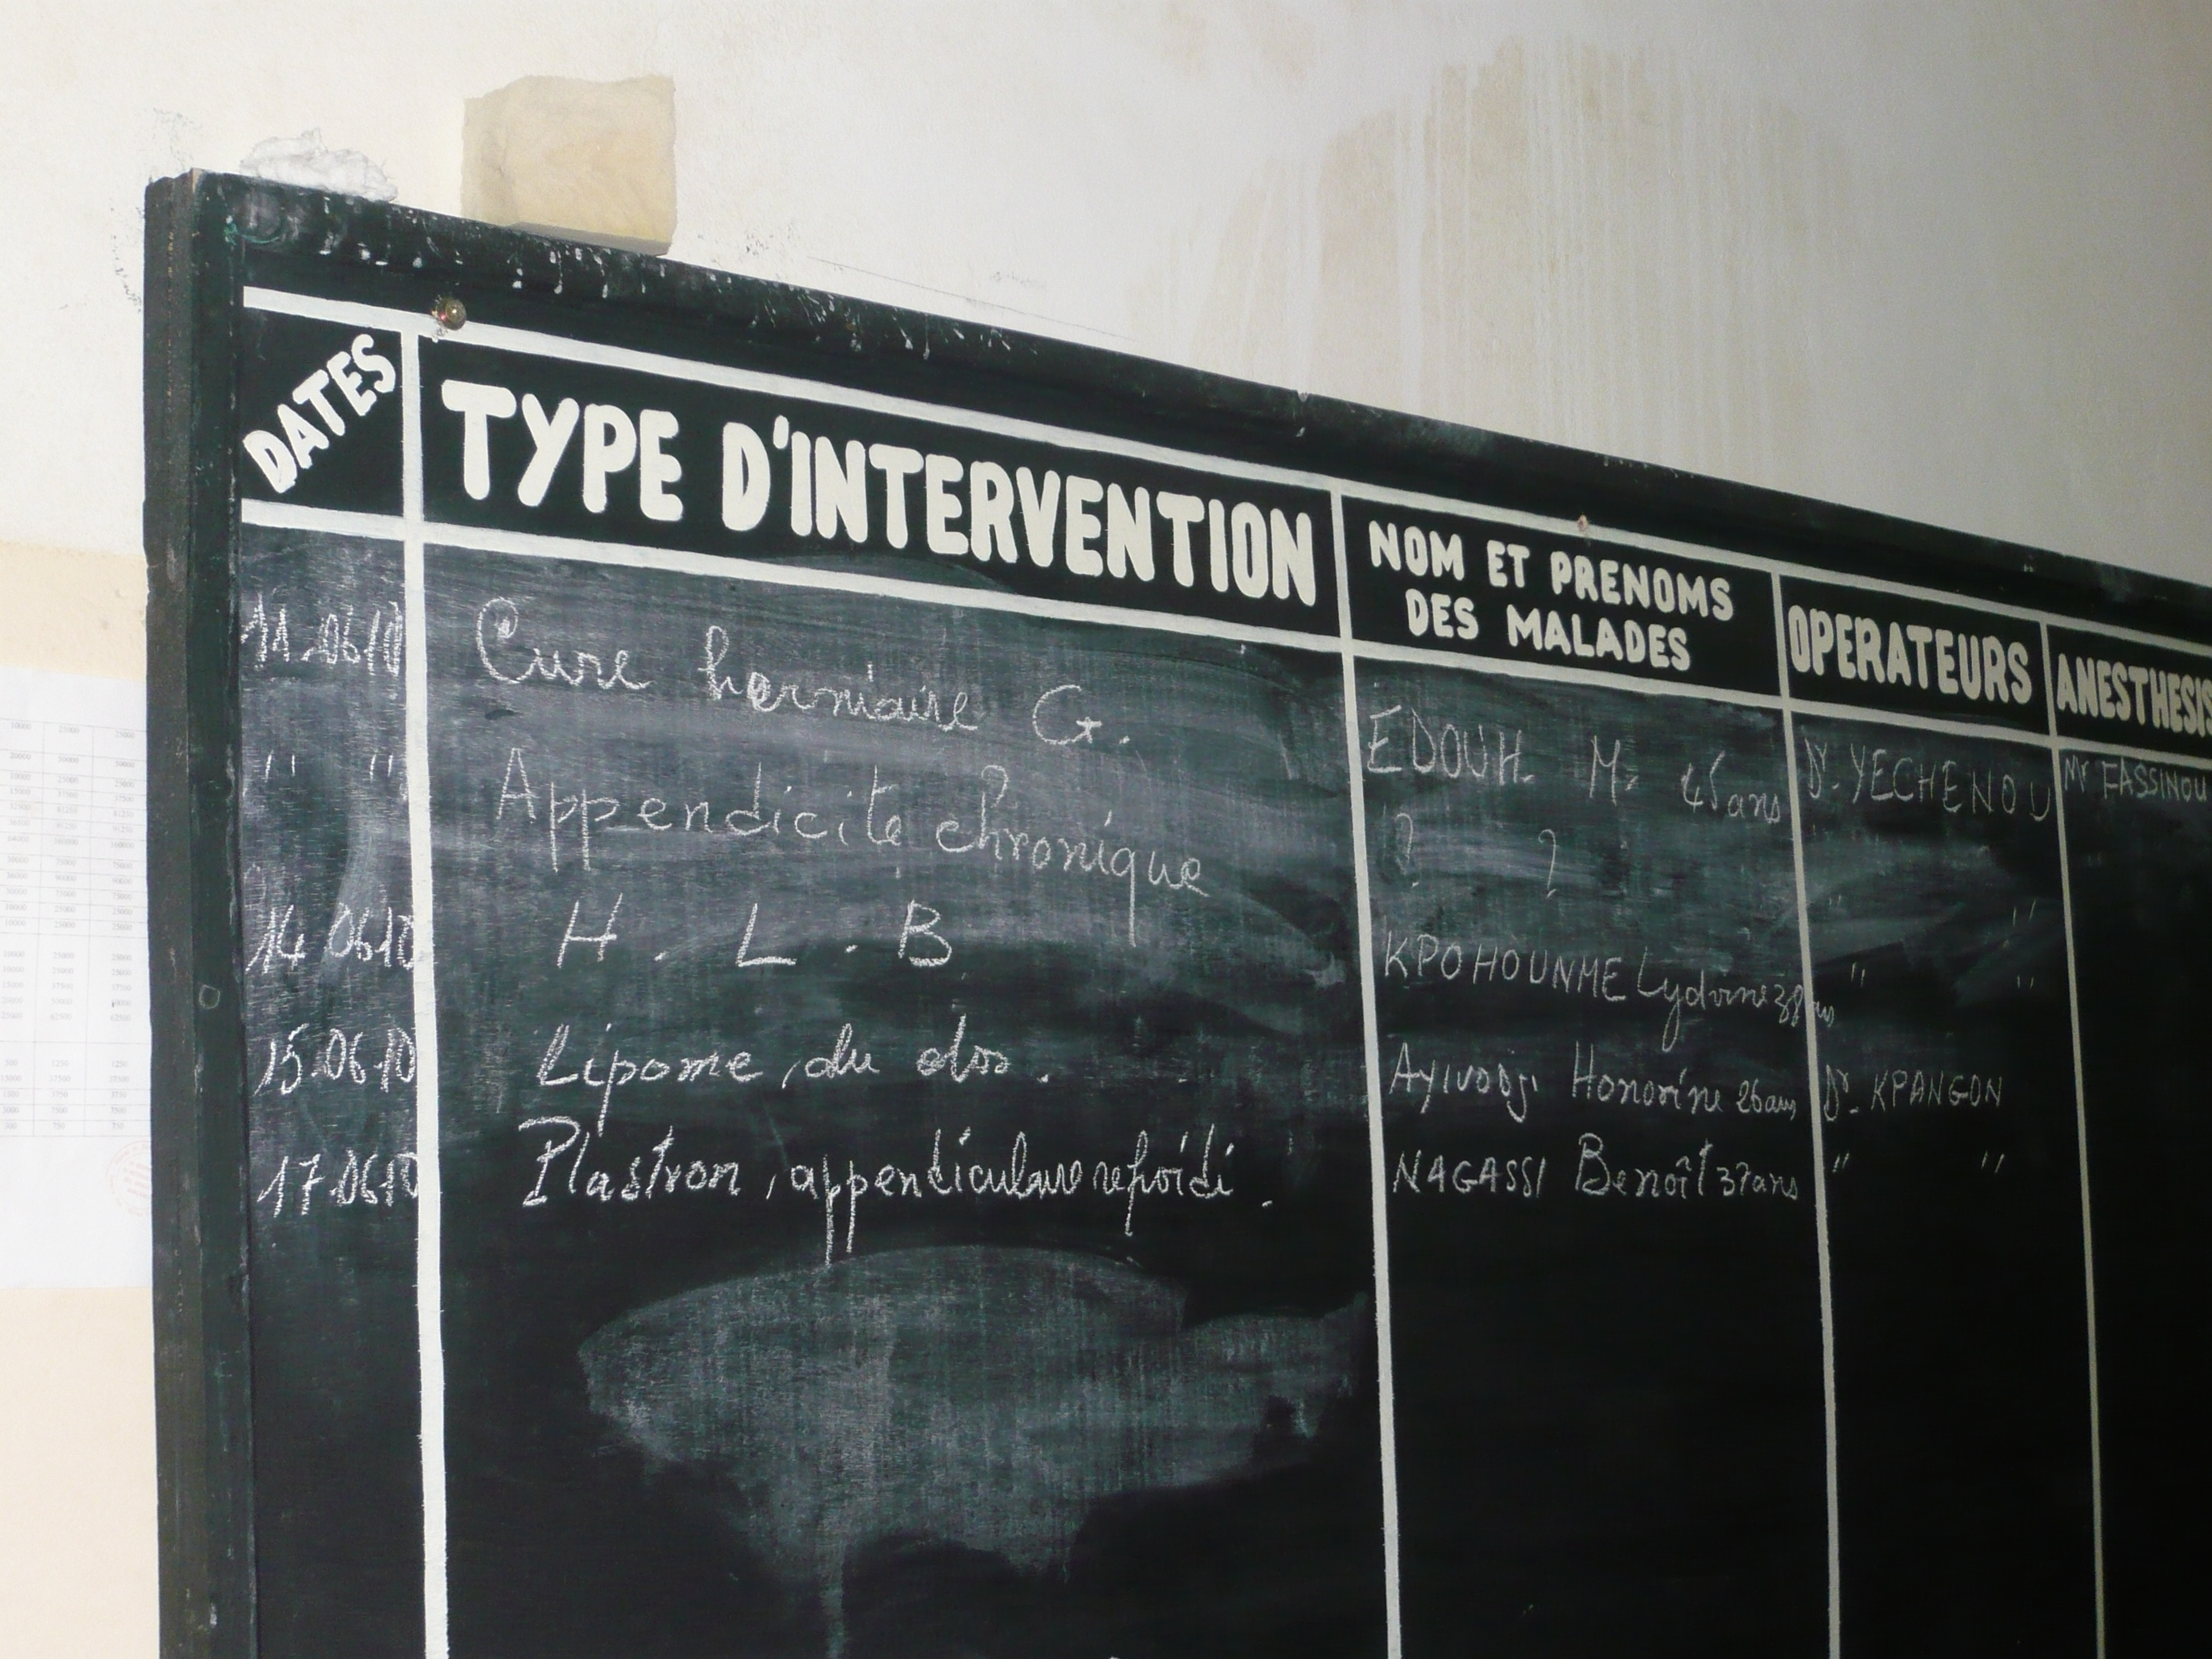 DATES TYPE D'INTERVENTION NOM ET PRENOMS DES MALADES OPERATEURS ANESTHESIS
11.06.10 Cure herniaire G. EDOUH. M. 45 ans Dr. YECHENOU Mr FASSINOU
" " Appendicite chronique ? ? " "
14.06.10 H. L. B KPOHOUNME Lydvine 38 ans " "
15.06.10 Lipome du dos. Ayivodji Honorine 26 ans Dr. KPANGON
17.06.10 Plastron appendiculaire refroidi. NAGASSI Benoît 37 ans " "